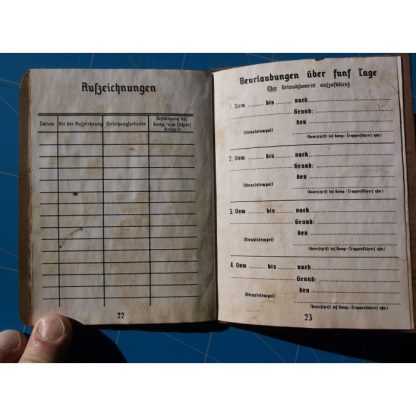 Aufzeichnungen
Datum
Art der Aufzeichnung
Verleihungsurkunde
Bestätigung des
Komp.- usw. Führers
22
Beurlaubungen über fünf Tage
(Nur Urlaubsantritt aufzuführen)
1. Vom ........ bis ........ nach
Grund:
den
(Dienststempel)
(Unterschrift des Komp.-Truppenführers usw.)
2. Vom ........ bis ........ nach
Grund:
den
(Dienststempel)
(Unterschrift des Komp.-Truppenführers usw.)
3. Vom ........ bis ........ nach
Grund:
den
(Dienststempel)
(Unterschrift des Komp.-Truppenführers usw.)
4. Vom ........ bis ........ nach
Grund:
den
(Dienststempel)
(Unterschrift des Komp.-Truppenführers usw.)
23